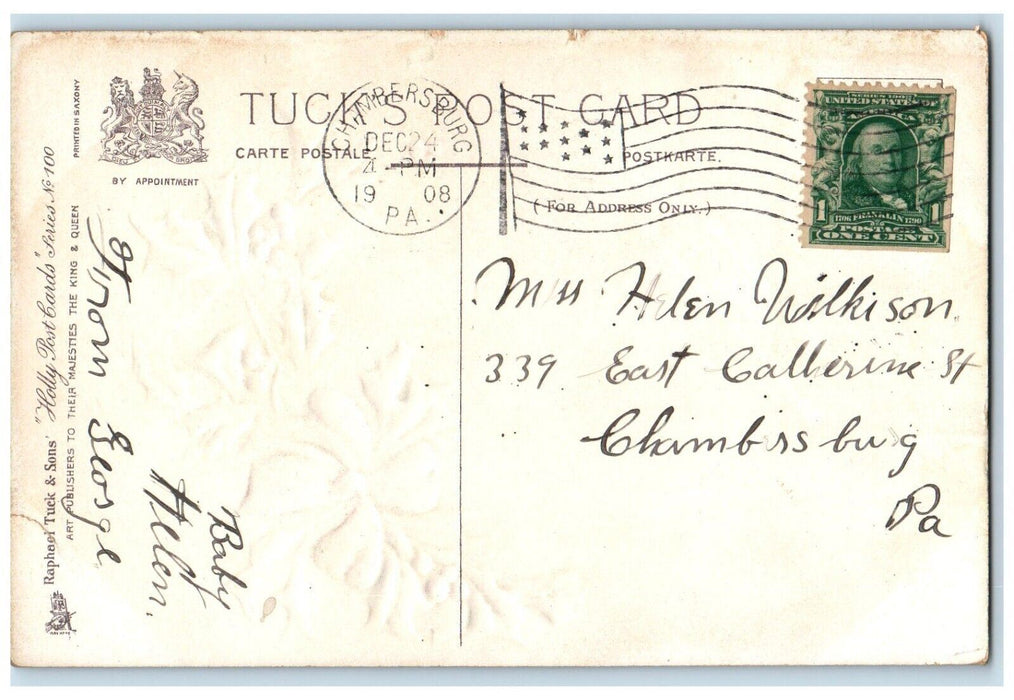 TUCK'S POST CARD
CARTE POSTALE.
POSTKARTE.
(FOR ADDRESS ONLY.)
BY APPOINTMENT
PRINTED IN SAXONY
Raphael Tuck & Sons' "Holly Post Cards" Series No 100
ART PUBLISHERS TO THEIR MAJESTIES THE KING & QUEEN
CHAMBERSBURG
DEC 24
4 - PM
19 08
PA.
SERIES 1902
UNITED STATES OF
AMERICA
1 1706 FRANKLIN 1790 1
POSTAGE
ONE CENT
Miss Helen Wilkison
339 East Catherine St
Chambersburg
Pa
From George
Baby
Helen.